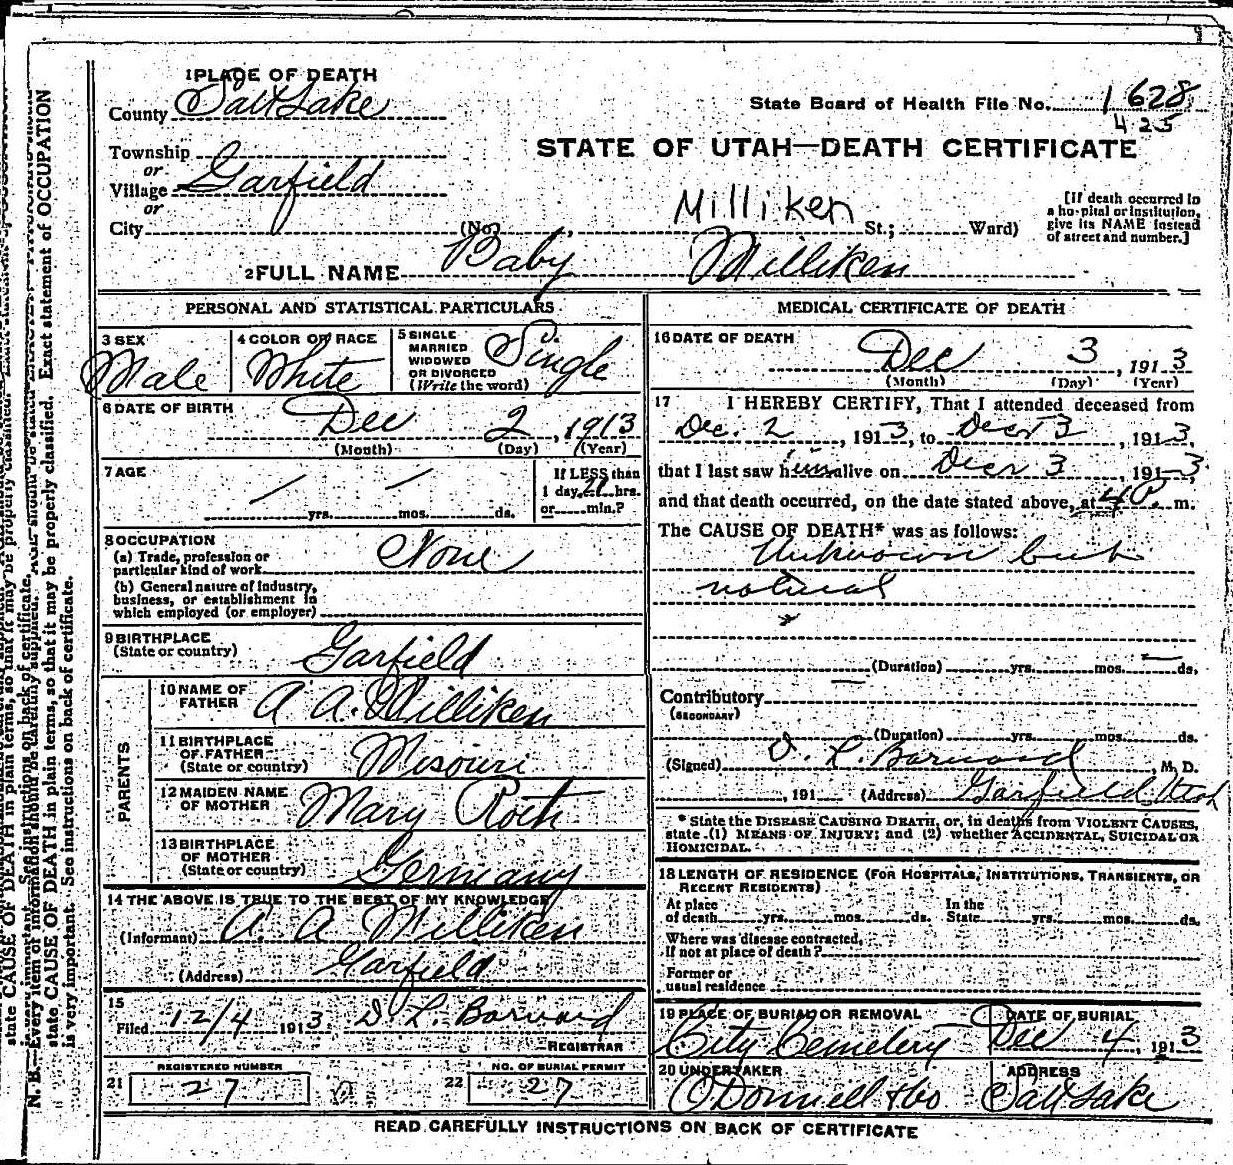 1 PLACE OF DEATH
County Salt Lake
State Board of Health File No. 1628
425
STATE OF UTAH—DEATH CERTIFICATE
Township
or
Village Garfield
or
City (No. St.; Ward)
Milliken
[If death occurred in
a hospital or institution,
give its NAME instead
of street and number.]
2 FULL NAME Baby Milliken
PERSONAL AND STATISTICAL PARTICULARS
3 SEX
Male
4 COLOR OR RACE
White
5 SINGLE
MARRIED
WIDOWED
OR DIVORCED
(Write the word)
Single
6 DATE OF BIRTH
Dec 2, 1913
(Month) (Day) (Year)
7 AGE
yrs. mos. ds.
If LESS than
1 day, hrs.
or min.?
8 OCCUPATION
(a) Trade, profession or
particular kind of work None
(b) General nature of industry,
business, or establishment in
which employed (or employer)
9 BIRTHPLACE
(State or country) Garfield
PARENTS
10 NAME OF
FATHER A A. Milliken
11 BIRTHPLACE
OF FATHER
(State or country) Misouri
12 MAIDEN NAME
OF MOTHER Mary Roth
13 BIRTHPLACE
OF MOTHER
(State or country) Germany
14 THE ABOVE IS TRUE TO THE BEST OF MY KNOWLEDGE
(Informant) A. A Milliken
(Address) Garfield
15
Filed 12/4 1913 D L. Barnard
REGISTRAR
REGISTERED NUMBER
21 27
NO. OF BURIAL PERMIT
22 27
MEDICAL CERTIFICATE OF DEATH
16 DATE OF DEATH
Dec 3, 1913
(Month) (Day) (Year)
17 I HEREBY CERTIFY, That I attended deceased from
Dec. 2, 1913, to Decr 3, 1913,
that I last saw him alive on Decr 3, 191-3.
and that death occurred, on the date stated above, at 4 P. m.
The CAUSE OF DEATH* was as follows:
Unknown but
natural
(Duration) yrs. mos. ds.
Contributory
(SECONDARY)
(Duration) yrs. mos. ds.
(Signed) D. L. Barnard, M. D.
, 191 (Address) Garfield Utah
* State the DISEASE CAUSING DEATH, or, in deaths from VIOLENT CAUSES,
state (1) MEANS OF INJURY; and (2) whether ACCIDENTAL, SUICIDAL OR
HOMICIDAL.
18 LENGTH OF RESIDENCE (FOR HOSPITALS, INSTITUTIONS, TRANSIENTS, OR
RECENT RESIDENTS)
At place
of death yrs. mos. ds.
In the
State yrs. mos. ds.
Where was disease contracted,
If not at place of death?
Former or
usual residence
19 PLACE OF BURIAL OR REMOVAL
City Cemetery
DATE OF BURIAL
Dec 4, 1913
20 UNDERTAKER
O'Donnell & Co
ADDRESS
Salt Lake
READ CAREFULLY INSTRUCTIONS ON BACK OF CERTIFICATE
N. B.—Every item of information should be carefully supplied.
state CAUSE OF DEATH in plain terms, so that it may be properly classified. Exact statement of OCCUPATION
is very important. See instructions on back of certificate.